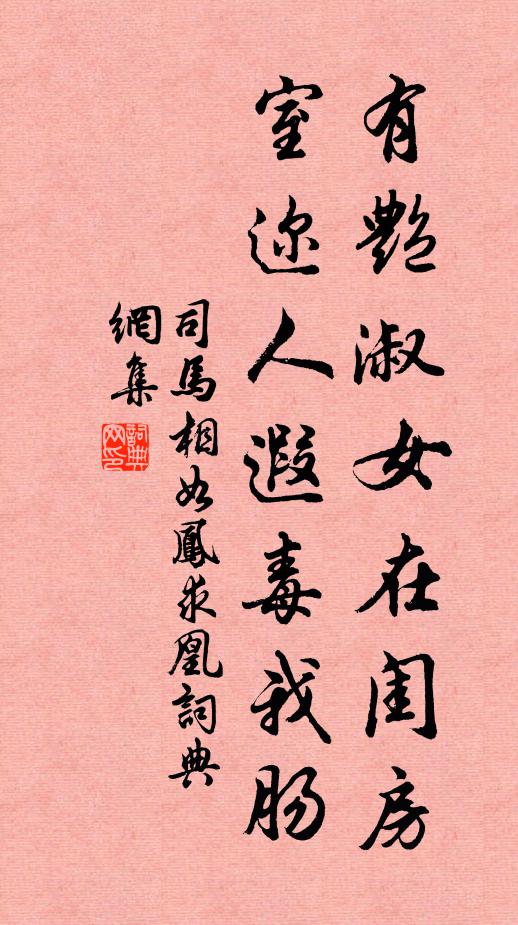 有艷淑女在閨房
室迩人遐毒我肠
司馬相如鳳求凰詞典
網集
詞典
网印